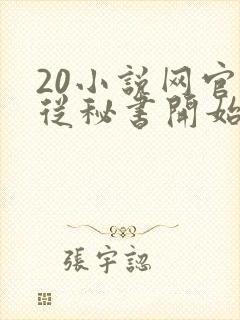 20小说网官
從秘書開始
張宇認